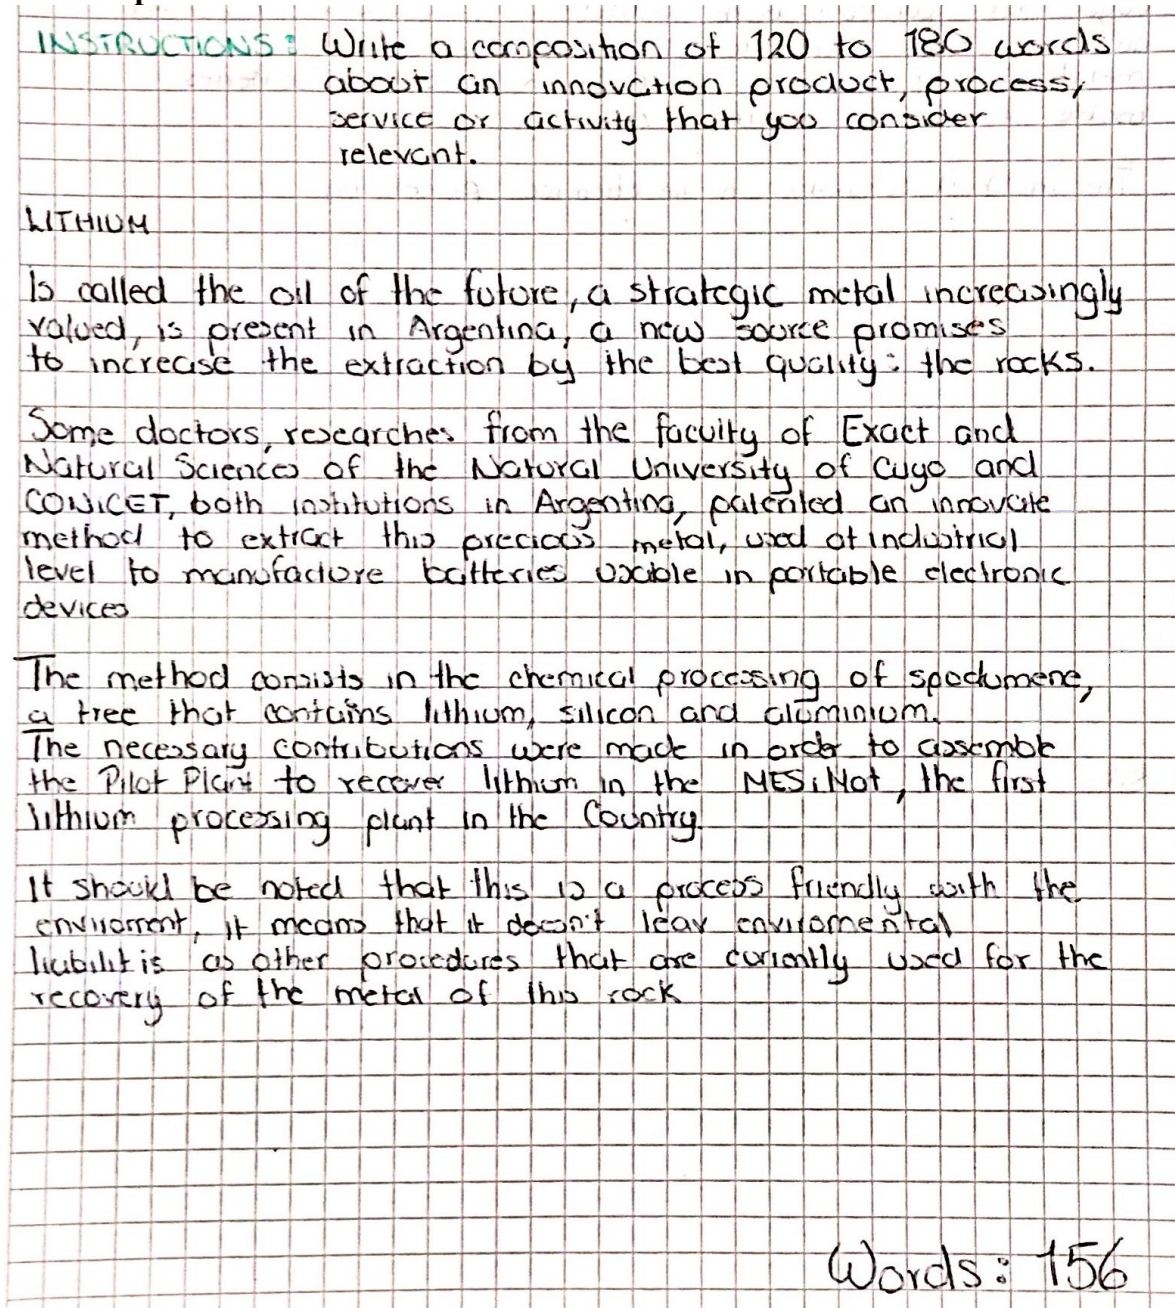 INSTRUCTIONS: Write a composition of 120 to 180 words
about an innovation product, process,
service or activity that you consider
relevant.
LITHIUM
Is called the oil of the future, a strategic metal increasingly
valued, is present in Argentina, a new source promises
to increase the extraction by the best quality: the rocks.
Some doctors, researches from the faculty of Exact and
Natural Sciences of the Natural University of Cuyo and
CONICET, both institutions in Argentina, patented an innovate
method to extract this precious metal, used at industrial
level to manufacture batteries usable in portable electronic
devices
The method consists in the chemical processing of spodumene,
a tree that contains lithium, silicon and aluminium.
The necessary contributions were made in order to assemble
the Pilot Plant to recover lithium in the the first
lithium processing plant in the Country.
It should be noted that this is a process friendly with the
enviroment, it means that it doesn't leav enviromental
liabilitis as other procedures that are curiently used for the
recovery of the metal of this rock
Words: 156